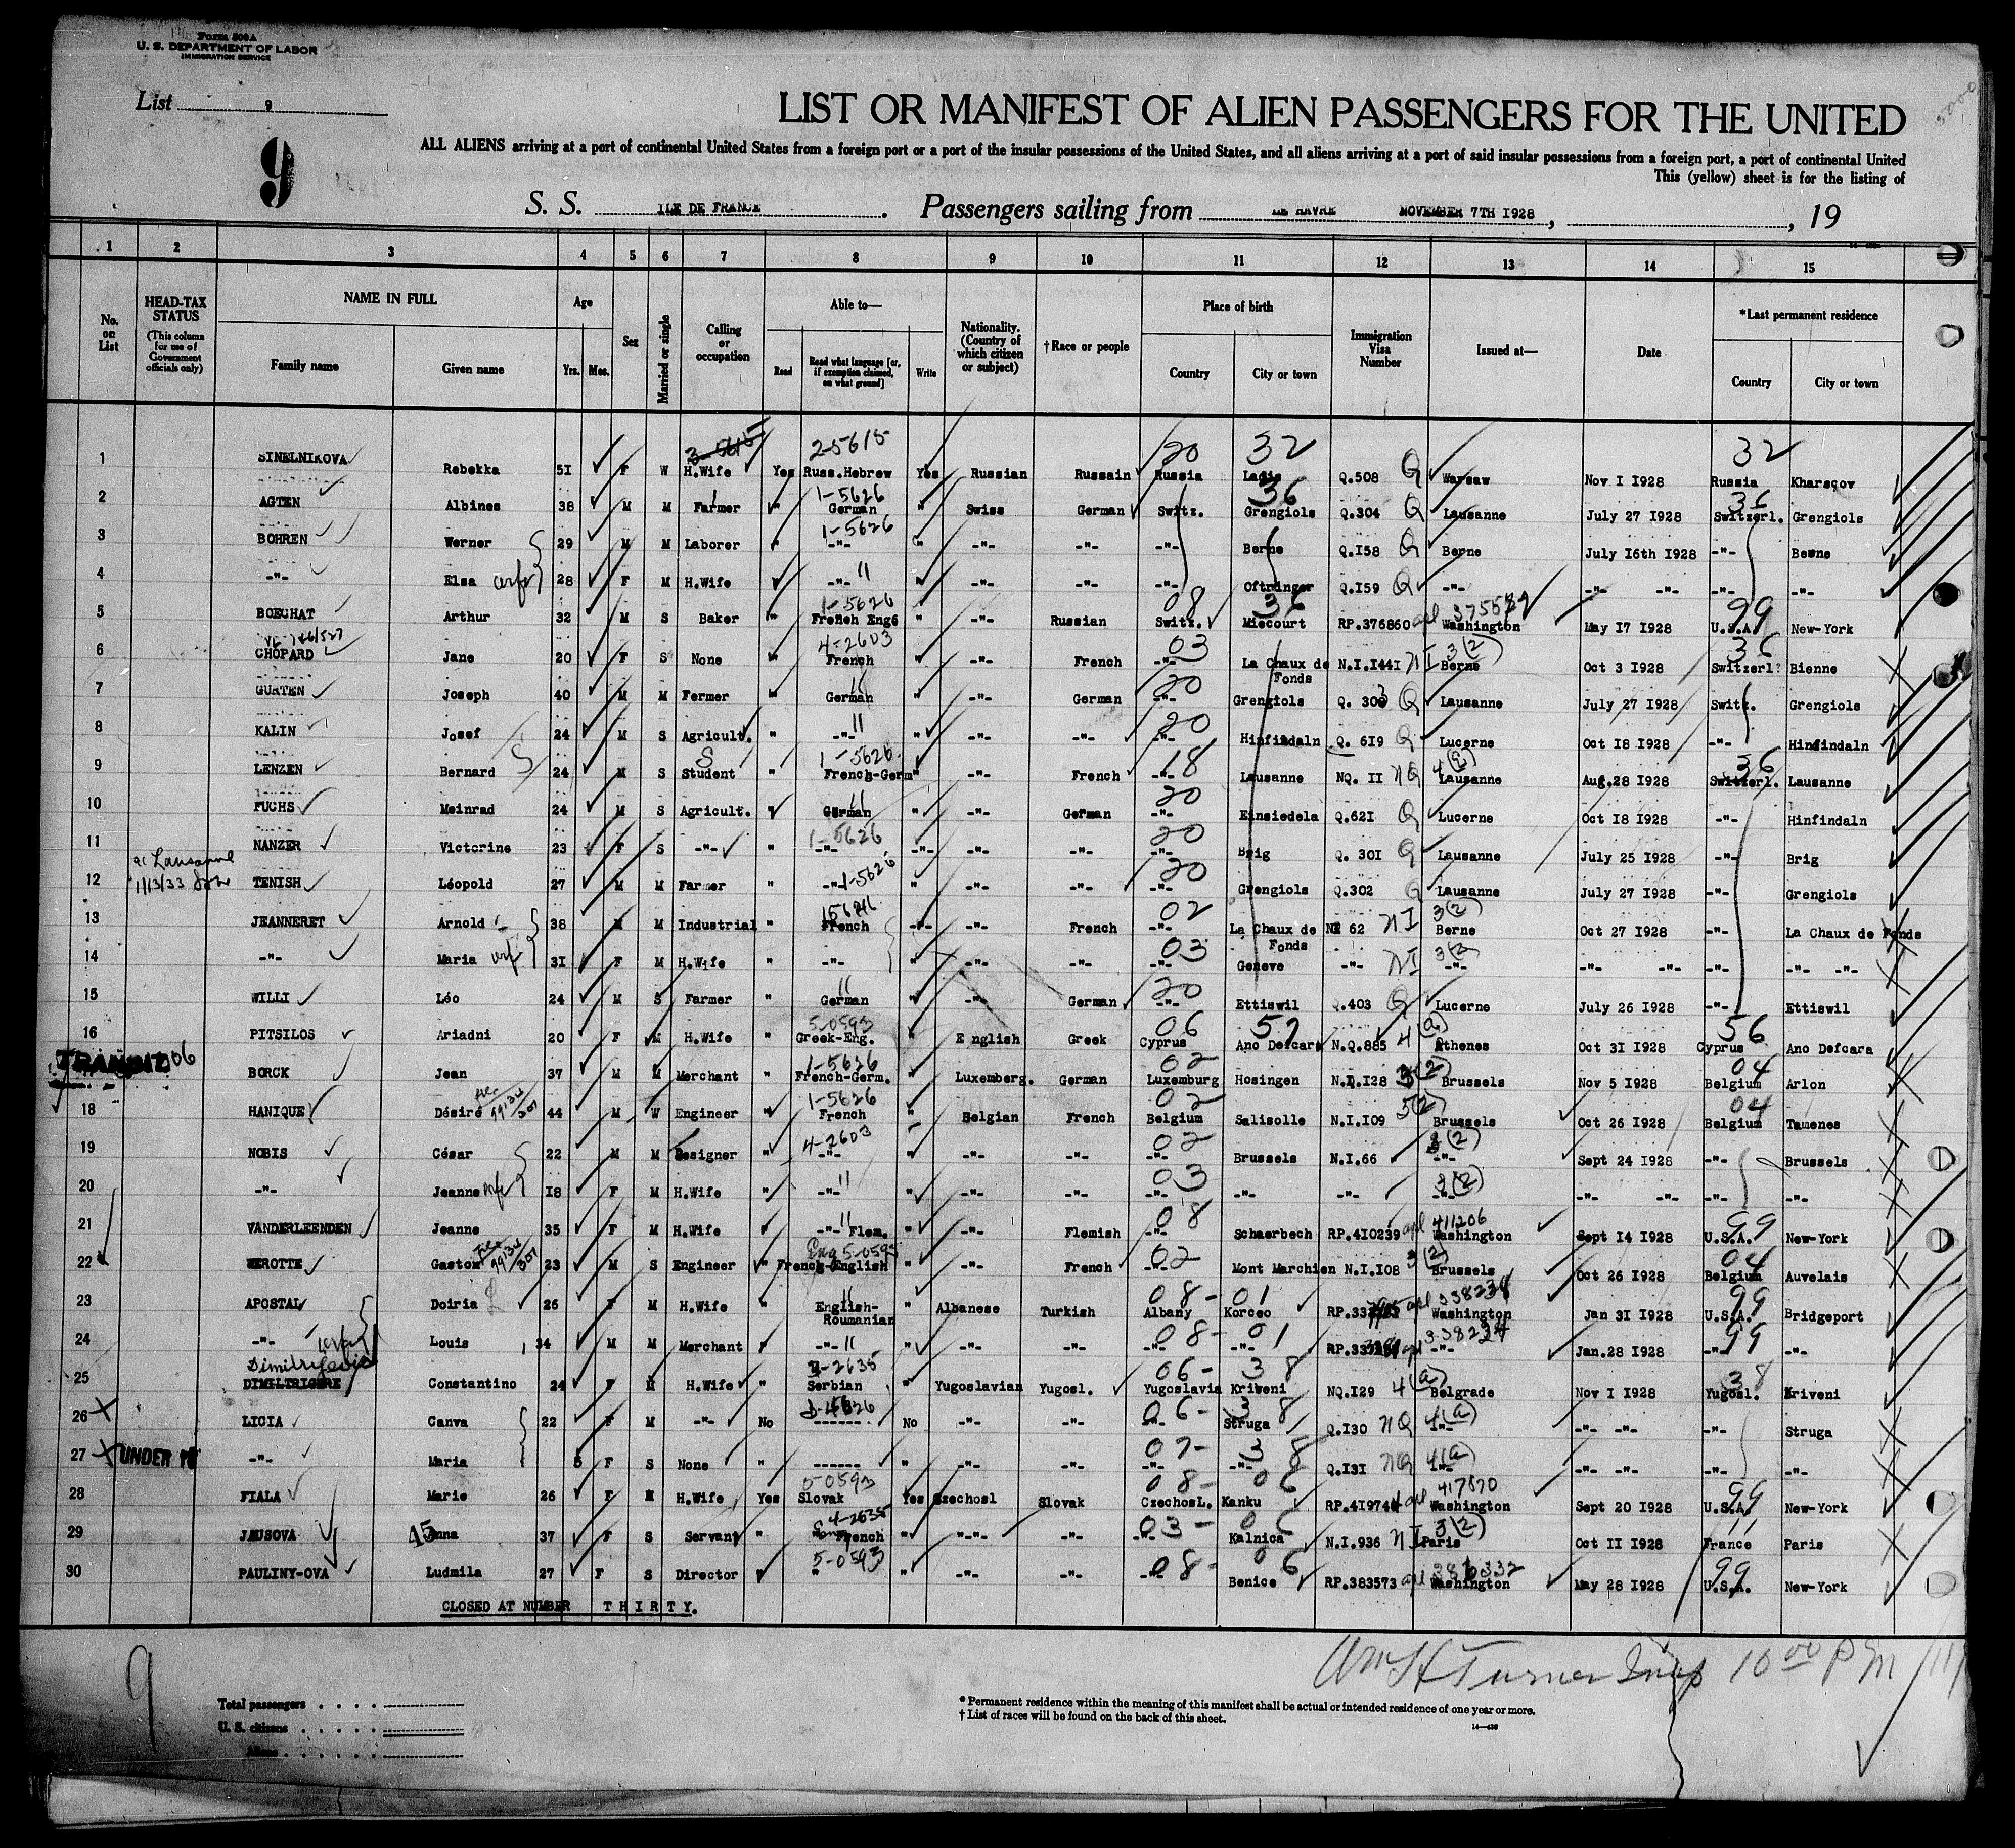 Form 500A
U. S. DEPARTMENT OF LABOR
IMMIGRATION SERVICE
List 9
9
LIST OR MANIFEST OF ALIEN PASSENGERS FOR THE UNITED
ALL ALIENS arriving at a port of continental United States from a foreign port or a port of the insular possessions of the United States, and all aliens arriving at a port of said insular possessions from a foreign port, a port of continental United
This (yellow) sheet is for the listing of
S. S. ILE DE FRANCE . Passengers sailing from LE HAVRE NOVEMBER 7TH 1928, , 19
1 2 3 4 5 6 7 8 9 10 11 12 13 14 15
No. on List
HEAD-TAX STATUS (This column for use of Government officials only)
NAME IN FULL Family name Given name
Age Yrs. Mos.
Sex
Married or single
Calling or occupation
Able to— Read Read what language [or, if exemption claimed, on what ground] Write
Nationality. (Country of which citizen or subject)
†Race or people
Place of birth Country City or town
Immigration Visa Number
Issued at—
Date
*Last permanent residence Country City or town
3-5615 2-5615 20 32 32
1 SINELNIKOVA Rebekka 51 F W H.Wife Yes Russ.Hebrew Yes Russian Russain Russia Q.508 Q Warsaw Nov I 1928 Russia Kharscov
1-5626 36 36
2 AGTEN Albines 38 M M Farmer " German " Swiss German Switz. Grengiols Q.304 Q Lausanne July 27 1928 Switzerl. Grengiols
1-5626
3 BOHREN Werner 29 M M Laborer " -"- " -"- -"- -"- Berne Q.158 Q Berne July 16th 1928 -"- Berne
4 -"- Elsa wife 28 F M H.Wife " -"- " -"- -"- -"- Oftringer Q.159 Q -"- -"- -"- -"- -"-
1-5626 08 36 375539 99
5 BOEGHAT Arthur 32 M S Baker " French Eng6 " -"- Russian Switz. Miecourt RP.376860 Washington May 17 1928 U.S.A. New-York
4-2603 03 3(2) 36
6 CHOPARD Jane 20 F S None " French " -"- French -"- La Chaux de Fonds N.I.I44I NI Berne Oct 3 1928 Switzerl. Bienne
20
7 GURTEN Joseph 40 M M Fermer " German " -"- German -"- Grengiols Q. 303 Q Lausanne July 27 1928 Switz. Grengiols
20
8 KALIN Josef 24 M S Agricult. " -"- " -"- -"- -"- Hinfindaln Q. 619 Q Lucerne Oct 18 1928 -"- Hinfindaln
S 1-5626 18 4(2) 36
9 LENZEN Bernard 24 M S Student " French-Germ " -"- French -"- Lausanne NQ. II NQ Lausanne Aug.28 1928 Switzerl. Lausanne
20
10 FUCHS Meinrad 24 M S Agricult. " German " -"- German -"- Einsiedela Q.621 Q Lucerne Oct 18 1928 -"- Hinfindaln
1-5626 20
11 NANZER Victorine 23 F S -"- " -"- -"- -"- -"- -"- Brig Q. 301 Q Lausanne July 25 1928 -"- Brig
Lausanne
1/13/33
1-5626 20
12 TENISH Léopold 27 M M Farmer " -"- " -"- -"- -"- Grengiols Q.302 Q Lausanne July 27 1928 -"- Grengiols
02 3(2)
13 JEANNERET Arnold 38 M M Industrial " French -"- -"- French -"- La Chaux de Fonds NI 62 NI Berne Oct 27 1928 -"- La Chaux de Fonds
03 3(2)
14 -"- Maria wife 31 F M H.Wife " -"- " -"- -"- -"- Geneve -"- NI -"- -"- -"- -"- -"- -"-
20
15 WILLI Léo 24 M S Farmer " German " -"- German -"- Ettiswil Q.403 Q Lucerne July 26 1928 -"- Ettiswil
5-0593 06 57 4(a) 56
16 PITSILOS Ariadni 20 F M H.Wife " Greek-Eng. " English Greek Cyprus Ano Defcara N.Q.885 Athenes Oct 31 1928 Cyprus Ano Defcara
TRANSIT 06 1-5626 02 3(2) 04
BORCK Jean 37 M M Merchant " French-Germ. " Luxemberg. German Luxemburg Hosingen N.I.128 Brussels Nov 5 1928 Belgium Arlon
99134/307 1-5626 02 3(2) 04
18 HANIQUE Désiré 44 M W Engineer " French " Belgian French Belgium Salisolle N.I.109 Brussels Oct 26 1928 Belgium Tamenes
4-2603 02 3(2)
19 NOBIS César 22 M M Designer " -"- " -"- -"- -"- Brussels N.I.66 -"- Sept 24 1928 -"- Brussels
03 3(2)
20 -"- Jeanne wife 18 F M H.Wife " -"- " -"- -"- -"- -"- -"- -"- -"- -"- -"- -"-
08 411206 99
21 VANDERLEENDEN Jeanne 35 F M H.Wife " -"- Flem. " -"- Flemish -"- Schaerbech RP.410239 Washington Sept 14 1928 U.S.A. New-York
99134/307 Eng 5-0595 02 3(2) 04
22 WEROTTE Gaston 23 M S Engineer " French-English " -"- French -"- Mont Marchien N.I.108 Brussels Oct 26 1928 Belgium Auvelais
08-01 338234 99
23 APOSTAL Doiria 26 F M H.Wife " English-Roumanian " Albanese Turkish Albany Korceo Washington Jan 31 1928 U.S.A. Bridgeport
08-01 338234 99
24 -"- wife Louis 34 M M Merchant " -"- " -"- -"- -"- -"- -"- Jan.28 1928 -"- -"-
2-2635 06-38 4(a) 38
25 DIMILTRIGERE Constantino 24 F M H.Wife " Serbian " Yugoslavian Yugosl. Yugoslavia Kriveni NQ.129 Belgrade Nov I 1928 Yugosl. Kriveni
06-38
26 X LICIA Canva 22 F M -"- No ------ No -"- -"- -"- Struga Q.130 NQ 4(a) -"- -"- -"- -"- Struga
07-38
27 X UNDER 16 -"- Maria 5 F S None " ------ " -"- -"- -"- -"- Q.131 NQ 4(a) -"- -"- -"- -"- -"-
5-0593 08-06 417570 99
28 FIALA Marie 26 F M H.Wife Yes Slovak Yes Czechosl Slovak CzechosL. Kanku RP.419744 Washington Sept 20 1928 U.S.A. New-York
4-2635 03-06 3(2)
29 JAUSOVA Anna 45 37 F S Servant " French " -"- -"- -"- Kalnica N.I.936 NI Paris Oct II 1928 France Paris
5-0593 08-06 99
30 PAULINY-OVA Ludmila 27 F S Director " " " -"- -"- -"- Benice RP.383573 Washington May 28 1928 U.S.A. New-York
CLOSED AT NUMBER THIRTY.
Wm H Turner Insp 10 00 PM
9
Total passengers
U. S. citizens
Aliens
* Permanent residence within the meaning of this manifest shall be actual or intended residence of one year or more.
† List of races will be found on the back of this sheet.
14—430